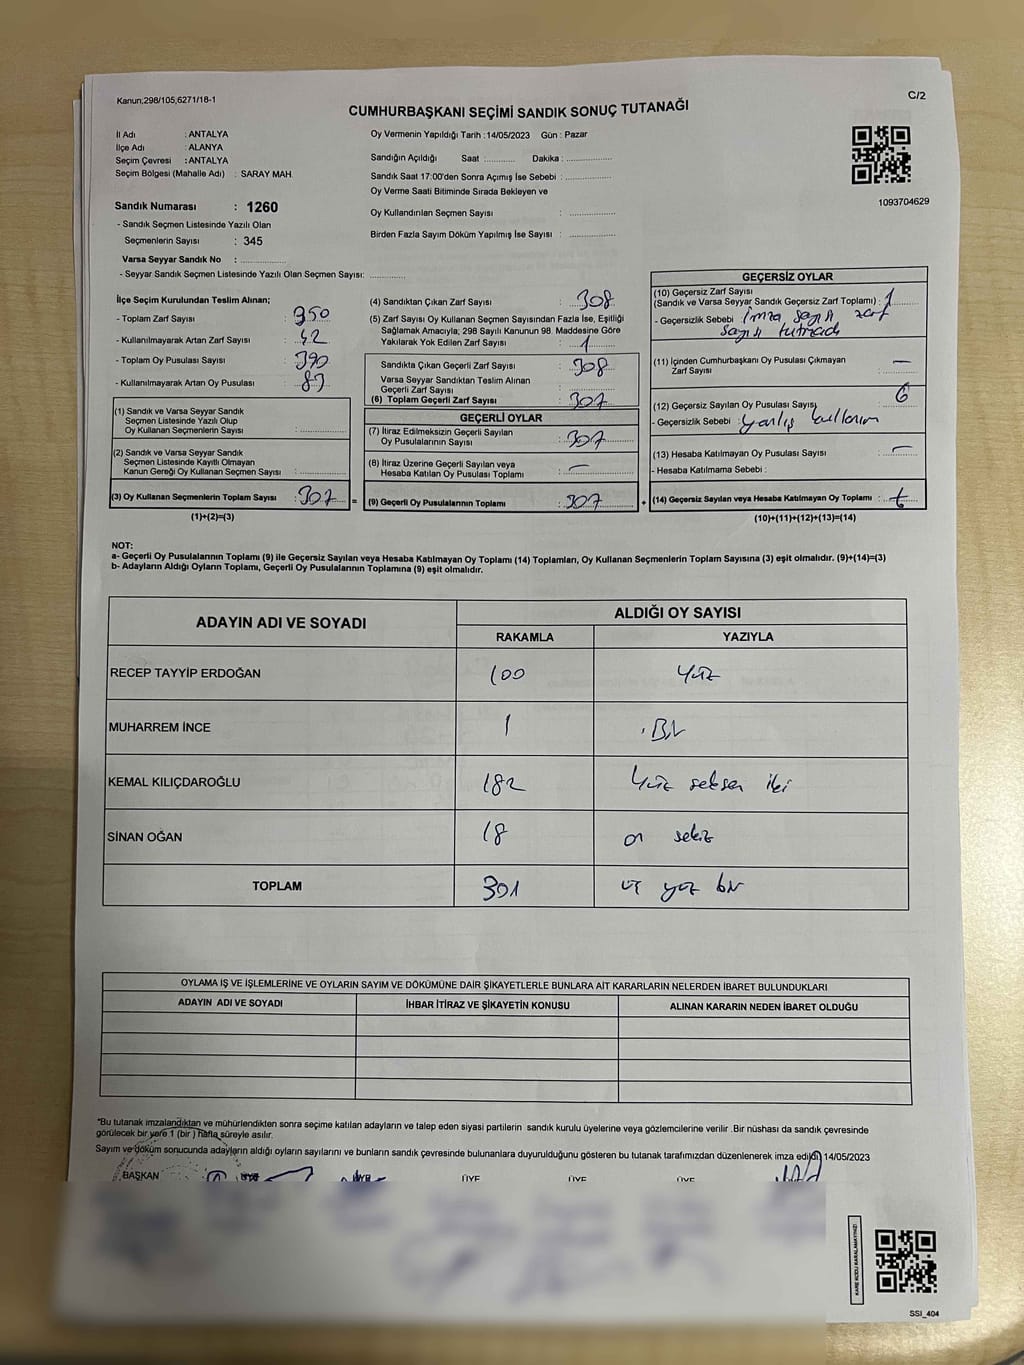 Kanun;298/105,6271/18-1
C/2
CUMHURBAŞKANI SEÇİMİ SANDIK SONUÇ TUTANAĞI
İl Adı : ANTALYA
İlçe Adı : ALANYA
Seçim Çevresi : ANTALYA
Seçim Bölgesi (Mahalle Adı) : SARAY MAH.
Oy Vermenin Yapıldığı Tarih :14/05/2023 Gün : Pazar
Sandığın Açıldığı Saat :............ Dakika :..................
Sandık Saat 17:00'den Sonra Açımış İse Sebebi :..................
Oy Verme Saati Bitiminde Sırada Bekleyen ve
Oy Kullandırılan Seçmen Sayısı :..................
Birden Fazla Sayım Döküm Yapılmış İse Sayısı :..................
1093704629
Sandık Numarası : 1260
- Sandık Seçmen Listesinde Yazılı Olan
Seçmenlerin Sayısı : 345
Varsa Seyyar Sandık No :..................
- Seyyar Sandık Seçmen Listesinde Yazılı Olan Seçmen Sayısı:..............
İlçe Seçim Kurulundan Teslim Alınan;
- Toplam Zarf Sayısı : 350
- Kullanılmayarak Artan Zarf Sayısı : 42
- Toplam Oy Pusulası Sayısı : 390
- Kullanılmayarak Artan Oy Pusulası : 83
(1) Sandık ve Varsa Seyyar Sandık
Seçmen Listesinde Yazılı Olup
Oy Kullanan Seçmenlerin Sayısı :..................
(2) Sandık ve Varsa Seyyar Sandık
Seçmen Listesinde Kayıtlı Olmayan
Kanun Gereği Oy Kullanan Seçmen Sayısı :..................
(3) Oy Kullanan Seçmenlerin Toplam Sayısı : 307 =
(1)+(2)=(3)
(4) Sandıktan Çıkan Zarf Sayısı : 308
(5) Zarf Sayısı Oy Kullanan Seçmen Sayısından Fazla İse, Eşitliği
Sağlamak Amacıyla; 298 Sayılı Kanunun 98. Maddesine Göre
Yakılarak Yok Edilen Zarf Sayısı : 1
Sandıkta Çıkan Geçerli Zarf Sayısı : 308
Varsa Seyyar Sandıktan Teslim Alınan
Geçerli Zarf Sayısı :..................
(6) Toplam Geçerli Zarf Sayısı : 307
GEÇERLİ OYLAR
(7) İtiraz Edilmeksizin Geçerli Sayılan
Oy Pusulalarının Sayısı : 307
(8) İtiraz Üzerine Geçerli Sayılan veya
Hesaba Katılan Oy Pusulası Toplamı : —
(9) Geçerli Oy Pusulalarının Toplamı : 307 +
GEÇERSİZ OYLAR
(10) Geçersiz Zarf Sayısı
(Sandık ve Varsa Seyyar Sandık Geçersiz Zarf Toplamı) : 1
- Geçersizlik Sebebi : imza sayısı zarf
sayısı tutmadı
(11) İçinden Cumhurbaşkanı Oy Pusulası Çıkmayan
Zarf Sayısı : —
(12) Geçersiz Sayılan Oy Pusulası Sayısı : 6
- Geçersizlik Sebebi : yanlış kullanım
(13) Hesaba Katılmayan Oy Pusulası Sayısı : —
- Hesaba Katılmama Sebebi :
(14) Geçersiz Sayılan veya Hesaba Katılmayan Oy Toplamı :
(10)+(11)+(12)+(13)=(14)
NOT:
a- Geçerli Oy Pusulalarının Toplamı (9) ile Geçersiz Sayılan veya Hesaba Katılmayan Oy Toplamı (14) Toplamları, Oy Kullanan Seçmenlerin Toplam Sayısına (3) eşit olmalıdır. (9)+(14)=(3)
b- Adayların Aldığı Oyların Toplamı, Geçerli Oy Pusulalarının Toplamına (9) eşit olmalıdır.
ADAYIN ADI VE SOYADI
ALDIĞI OY SAYISI
RAKAMLA YAZIYLA
RECEP TAYYİP ERDOĞAN 100 Yüz
MUHARREM İNCE 1 Bir
KEMAL KILIÇDAROĞLU 182 Yüz seksen iki
SİNAN OĞAN 18 on sekiz
TOPLAM 301 üç yüz bir
OYLAMA İŞ VE İŞLEMLERİNE VE OYLARIN SAYIM VE DÖKÜMÜNE DAİR ŞİKAYETLERLE BUNLARA AİT KARARLARIN NELERDEN İBARET BULUNDUKLARI
ADAYIN ADI VE SOYADI İHBAR İTİRAZ VE ŞİKAYETİN KONUSU ALINAN KARARIN NEDEN İBARET OLDUĞU
*Bu tutanak imzalandıktan ve mühürlendikten sonra seçime katılan adayların ve talep eden siyasi partilerin sandık kurulu üyelerine veya gözlemcilerine verilir .Bir nüshası da sandık çevresinde
görülecek bir yere 1 (bir ) hafta süreyle asılır.
Sayım ve döküm sonucunda adayların aldığı oyların sayılarını ve bunların sandık çevresinde bulunanlara duyurulduğunu gösteren bu tutanak tarafımızdan düzenlenerek imza edildi. 14/05/2023
BAŞKAN ÜYE ÜYE ÜYE ÜYE
KARE KODU KARALAMAYINIZ!
SSI_404